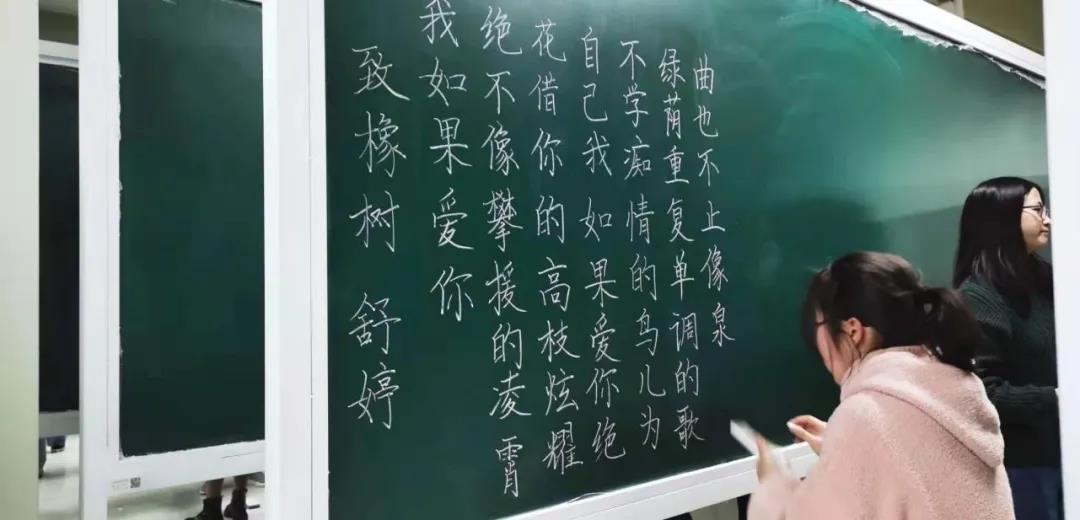 致橡树 舒婷
我如果爱你
绝不像攀援的凌霄
花借你的高枝炫耀
自己我如果爱你绝
不学痴情的鸟儿为
绿荫重复单调的歌
曲也不上像泉